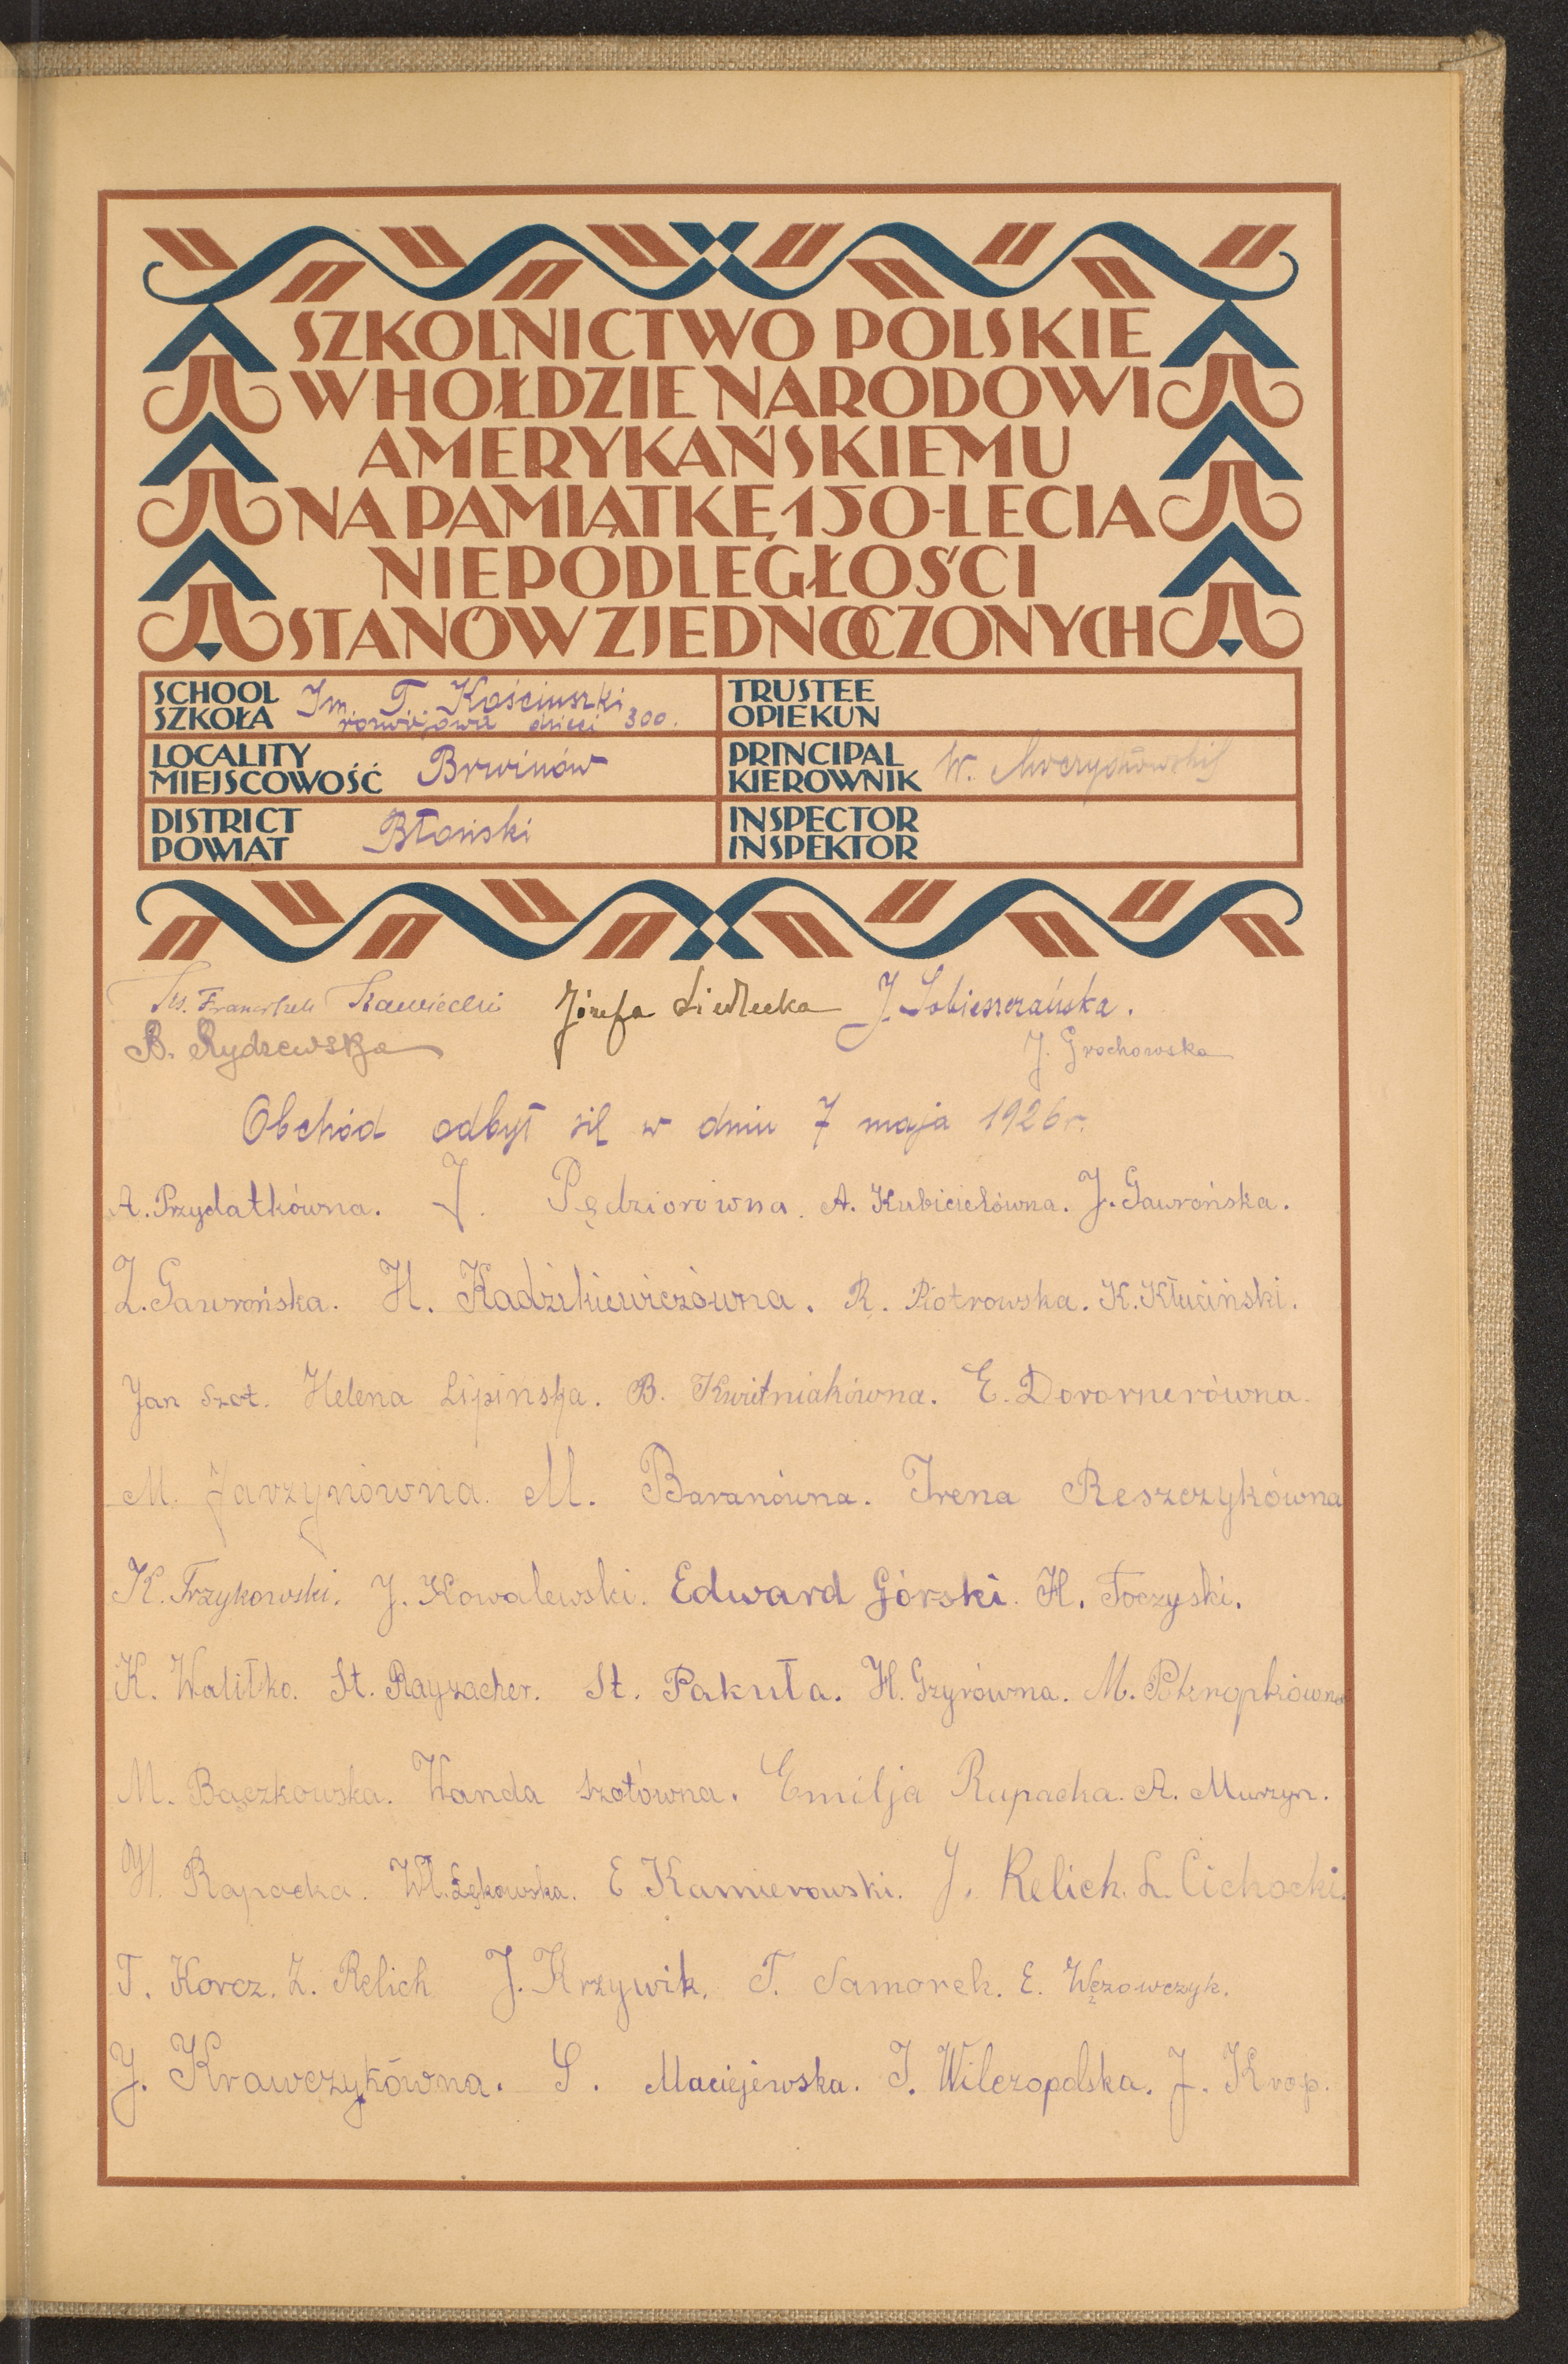 SZKOLNICTWO POLSKIE
W HOŁDZIE NARODOWI
AMERYKAŃSKIEMU
NA PAMIĄTKĘ 150-LECIA
NIEPODLEGŁOŚCI
STANÓW ZJEDNOCZONYCH
SCHOOL
SZKOŁA
Im. T. Kościuszki
dzieci 300.
TRUSTEE
OPIEKUN
LOCALITY
MIEJSCOWOŚĆ
Brwinów
PRINCIPAL
KIEROWNIK
W.
DISTRICT
POWIAT
Błoński
INSPECTOR
INSPEKTOR
Ks. Franciszek Kawiecki Józefa Siedlecka J. Sobieszczańska.
B. Rydzewska J. Grochowska
Obchód odbył się w dniu 7 maja 1926 r.
A. Przydatkówna. J. Pędziorówna. A. Kubicielówna. J. Gawrońska.
Z. Gawrońska. H. Kadzikiewiczówna. R. Piotrowska. K. Kłuciński.
Jan Szot. Helena Lipinska. B. Kwietniakówna. E. Dorornerówna.
M. Jarzynówna. M. Baranówna. Irena Reszczykówna
K. Trzykowski. J. Kowalewski. Edward Górski. H. Toczyski.
K. Walitko. St. Rayzacher. St. Pakuła. H. Gzyrówna. M.
M. Bączkowska. Wanda Szotówna. Emilja Rupacka. A. Murzyn.
H. Rapacka. Wł. Łękowska. E Kamierowski. J. Relich. L. Cichocki.
T. Korcz. Z. Relich J. Krzywik. T. Samorek. E. Węzowczyk.
J. Krawczykówna. S. Maciejewska. I. Wilczopolska. J. Krop.